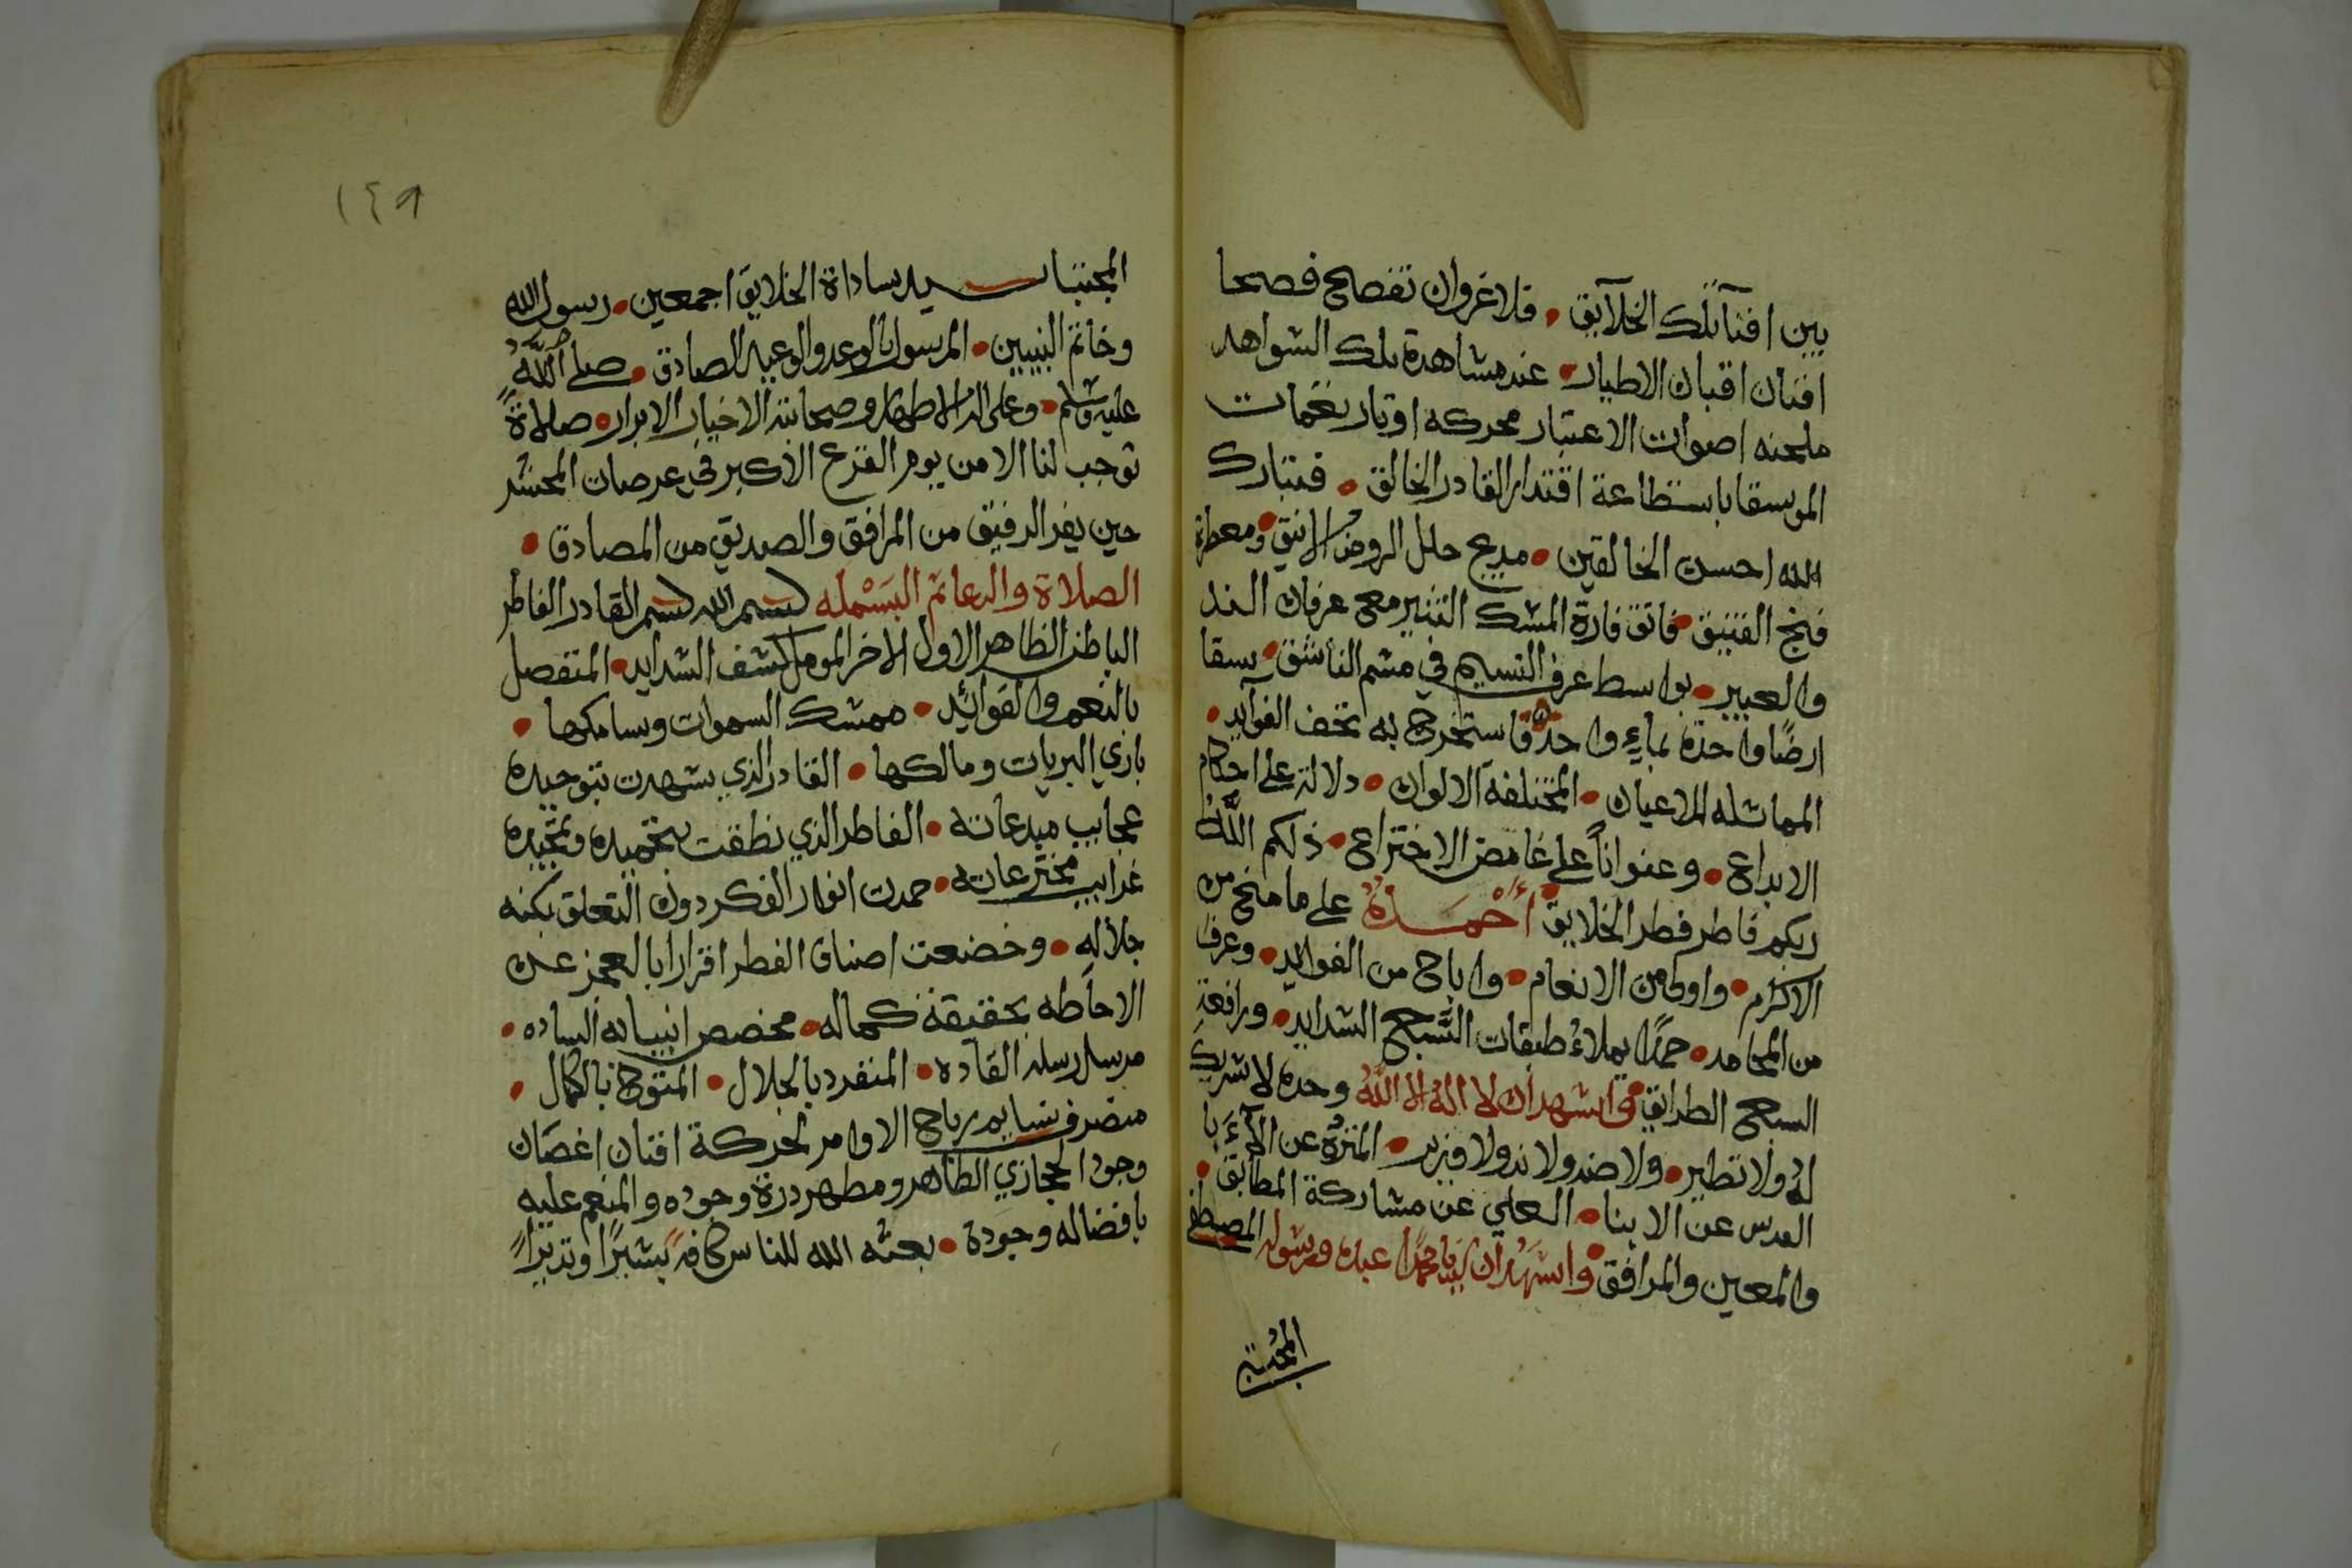 بين افنآ تلك الخلآيق • فلا غروان تفصح فصحا
افنان اقبان الاطيار • عند مشاهدة تلك الشواهد
ملحنه اصوات الاعتبار محركه اوتار نغمات
الموسقا باستطاعة اقتدار القادر الخالق • فتبارك
الله احسن الخالقين • مدبج حلل الروض الانيق • ومعطر
فنج الفتيق • فاتق فارة المشك التثير مع عرفان الند
والعبير • بواسط عرف النسيم في مشم الناشق • يسقا
ارضًا واحدة بماءٍ واحدٍ فاستخرج به تحف الفوآيد •
المماثله الاعيان • المختلفة الالوان • دلالة على احكام
الابداع • وعنواناً على غامض الاختراع • ذلكم اللّٰه
ربكم فاطر فطر الخلايق • أَحْمَدُهُ على ما منح من
الاكرام • واولى من الانعام • واباح من الفوايد • وعرف
من المحامد • حمدًا يملاءُ طبقات السَّبع الشدايد • ورافعة
السبع الطرايق • واشهد ان لا اله الا اللّٰهُ وحده لا شريك
لهُ ولا نظير • ولا ضد ولا ند ولا وزير • المنزهُ عن الآءَبا
القدس عن الابنا • العلي عن مشاركة المطابق •
والمعين والمرافق • واشهد ان سيدنا محمدًا عبده ورسوله المصطفى
المجتبا
١٤٩
المجتبا سيد ساداة الخلايق اجمعين • رسول الله
وخاتم النبيين • المرسول بالوعد والوعيد الصادق • صلى اللّٰهُ
عليه وسلم • وعلى اله الاطهار وصحابته الاخيار الابرار • صلاةً
توجب لنا الامن يوم الفزع الاكبر في عرصات المحشر
حين يفر الرفيق من المرافق والصديق من المصادق •
الصلاة والدعا تم البَسْمله بسم الله بسم القادر الفاطر
الباطن الظاهر الاول الاخر المومل لكشف الشدايد • المتفصل
بالنعم والفوائد • ممسك السموات وسامكها •
بارئ البريات ومالكها • القادر الذي شهدت بتوحيده
عجايب مبدعاته • الفاطر الذي نطقت بتحميده وتمجيده
غرايب مخترعاته • حمدت انوار الفكر دون التعلق بكنه
جلاله • وخضعت اصناف الفطر اقرارا بالعجز عن
الاحاطه بحقيقة كماله • مخصص انبيائه الساده •
مرسل رسله القاده • المنفرد بالجلال • المتوج بالكمال •
متصرف نسايم رياح الاوامر لحركة افنان اغصان
وجود الحجازي الطاهر ومطهر درة وجوده والمنعم عليه
بافضاله وجوده • بعثه الله للناس كافه بشيرًا ونذيرًا